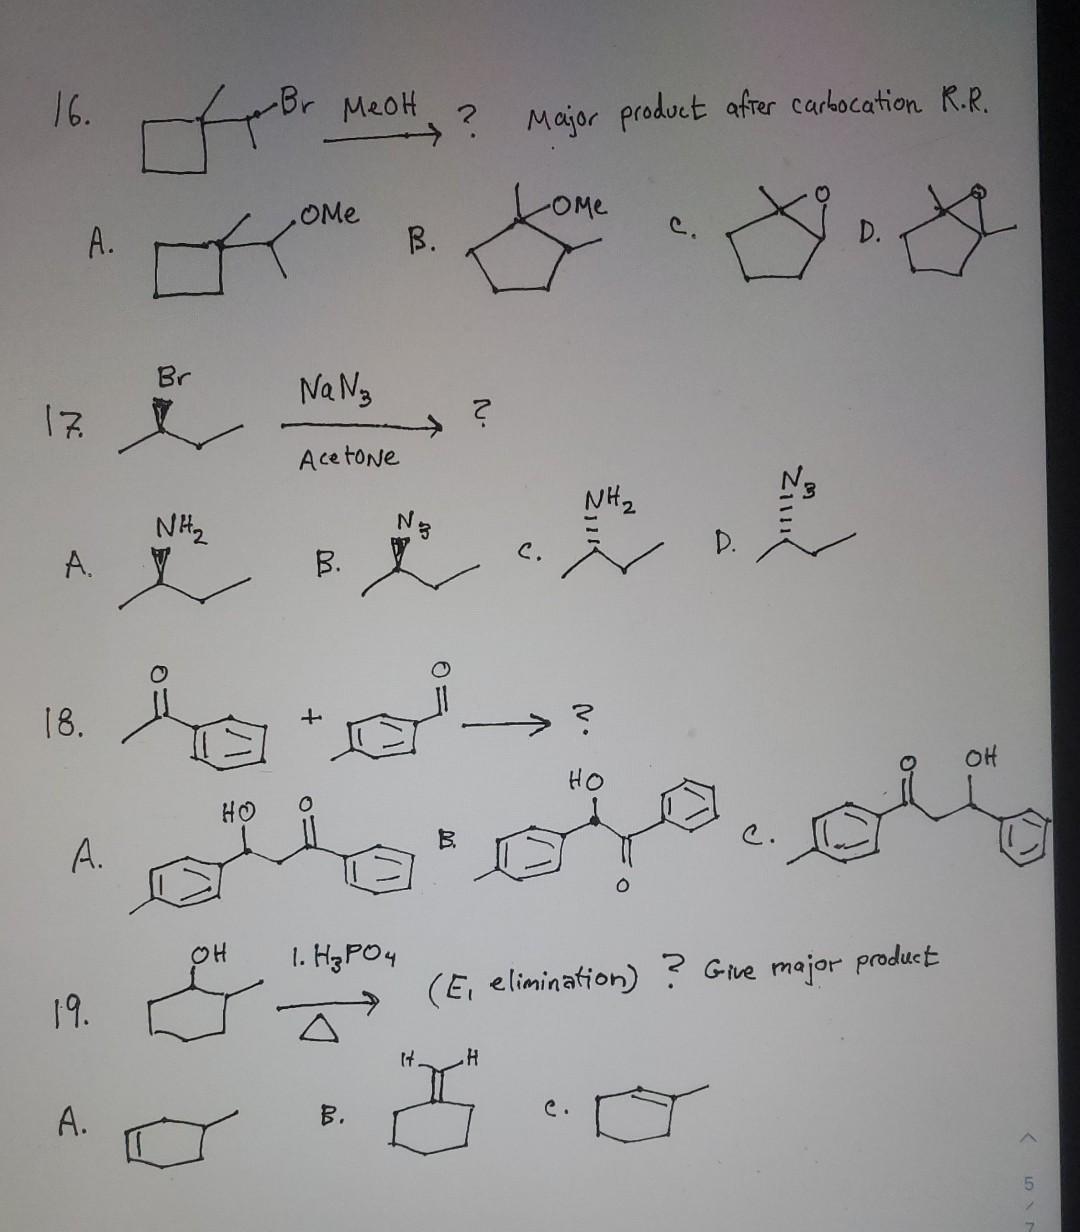 16. Br MeOH ? Major product after carbocation R.R.
A. OMe B. OMe C. O D. O
Br
17. NaN3 ?
Acetone
A. NH2 B. N3 C. NH2 D. N3
O O
18. + ?
A. HO O B. HO O C. O OH
OH
19. 1. H3PO4 (E1 elimination) ? Give major product
Δ
H H
A. B. C.
5
/
7